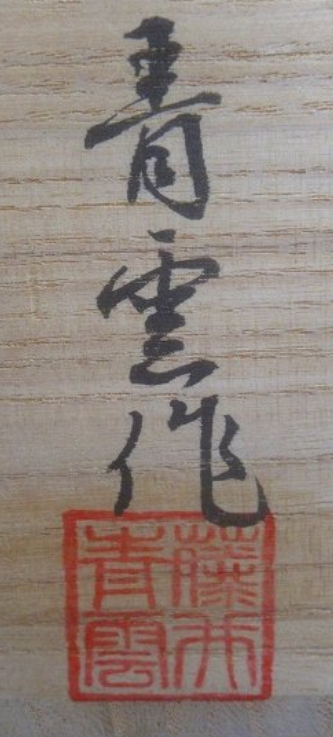 青雲作
藤井
青雲